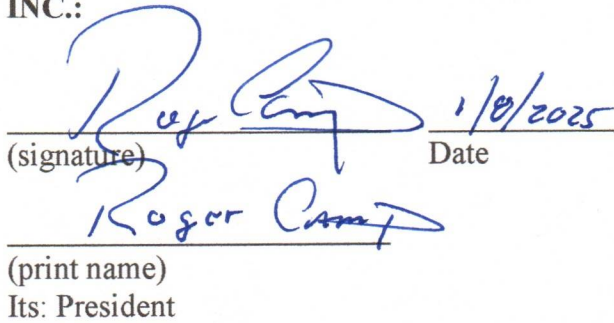 INC.:
Roger Camp 1/8/2025
(signature) Date
Roger Camp
(print name)
Its: President